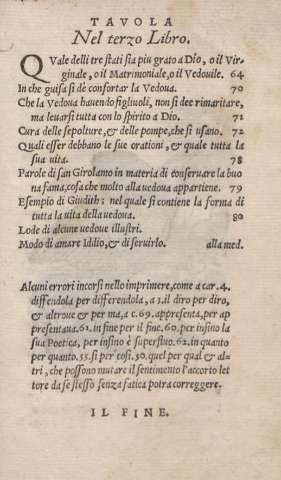 TAVOLA
Nel terzo Libro.
QVale delli tre stati sia piu grato a Dio, o il Vir-
ginale, o il Matrimoniale, o il Vedouile. 64
In che guisa si dè confortar la Vedoua. 70
Che la Vedoua hauendo figliuoli, non si dee rimaritare,
ma leuarsi tutta con lo spirito a Dio. 71
Cura delle sepolture, & delle pompe, che si usano. 72
Quali esser debbano le sue orationi, & quale tutta la
sua uita. 78
Parole di san Girolamo in materia di conseruare la buo
na fama, cosa che molto alla uedoua appartiene. 79
Esempio di Giudith: nel quale si contiene la forma di
tutta la uita della uedoua. 80
Lode di alcune uedoue illustri.
Modo di amare Iddio, & di seruirlo. alla med.
Alcuni errori incorsi nello imprimere, come a car. 4.
diffendola per differendola, a 3. il diro per diro,
& altroue & per ma, a c. 69. appresenta, per ap
presentaua. 61. in fine per il fine. 60. per insino la
sua Poetica, per insino è superfluo. 62. in quanto
per quanto. 55. si per cosi. 30. quel per qual & al-
tri, che possono mutare il sentimento l'accorto let
tore da se stesso senza fatica potra correggere.
IL FINE.